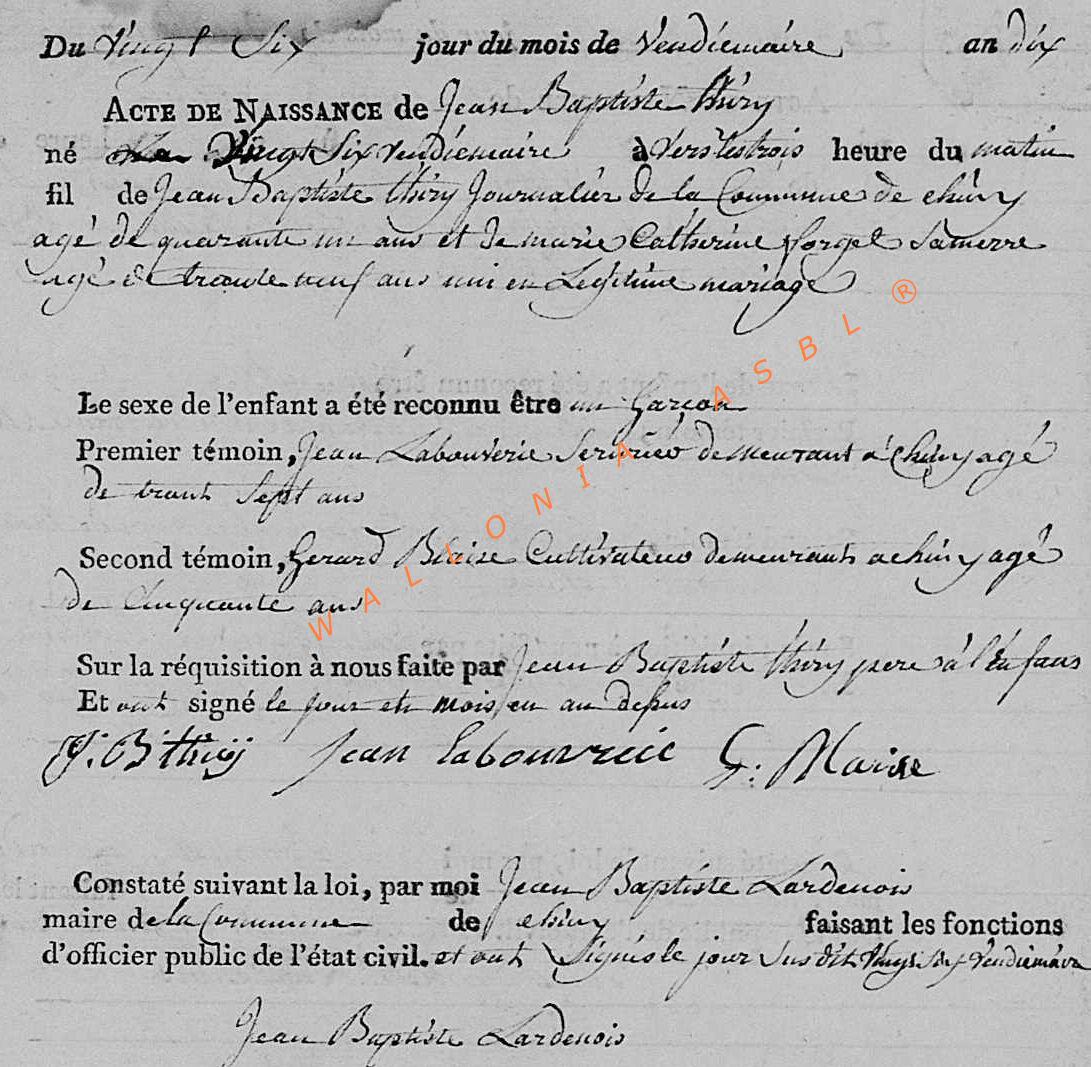 Du Vingt Six jour du mois de Vendiemaire an dix
ACTE DE NAISSANCE de Jean Baptiste thiry
né Le Vingt Six vendiemaire à vers les trois heure du matin
fil de Jean Baptiste thiry Journalier de la Commune de chiny
agé de quarante un ans et de marie Catherine forget sa merre
agé de trante neuf ans uni en Legitime mariage
Le sexe de l'enfant a été reconnu être un Garcon
Premier témoin, Jean Labouverie demeurant a Chiny agé
de trant Sept ans
Second témoin, Gerard Blaise Cultivateur demeurant a chiny agé
de Cinquante ans
Sur la réquisition à nous faite par Jean Baptiste thiry pere à l'Enfans
Et ont signé le jour et mois en an desus
J. B thirÿ jean labouverie G:
Constaté suivant la loi, par moi Jean Baptiste Lardenois
maire de la Commune de chiny faisant les fonctions
d'officier public de l'état civil. et ont Signés le jour Susdit Vingt Six Vendiemaire
Jean Baptiste Lardenois
WALLONIA ASBL ®